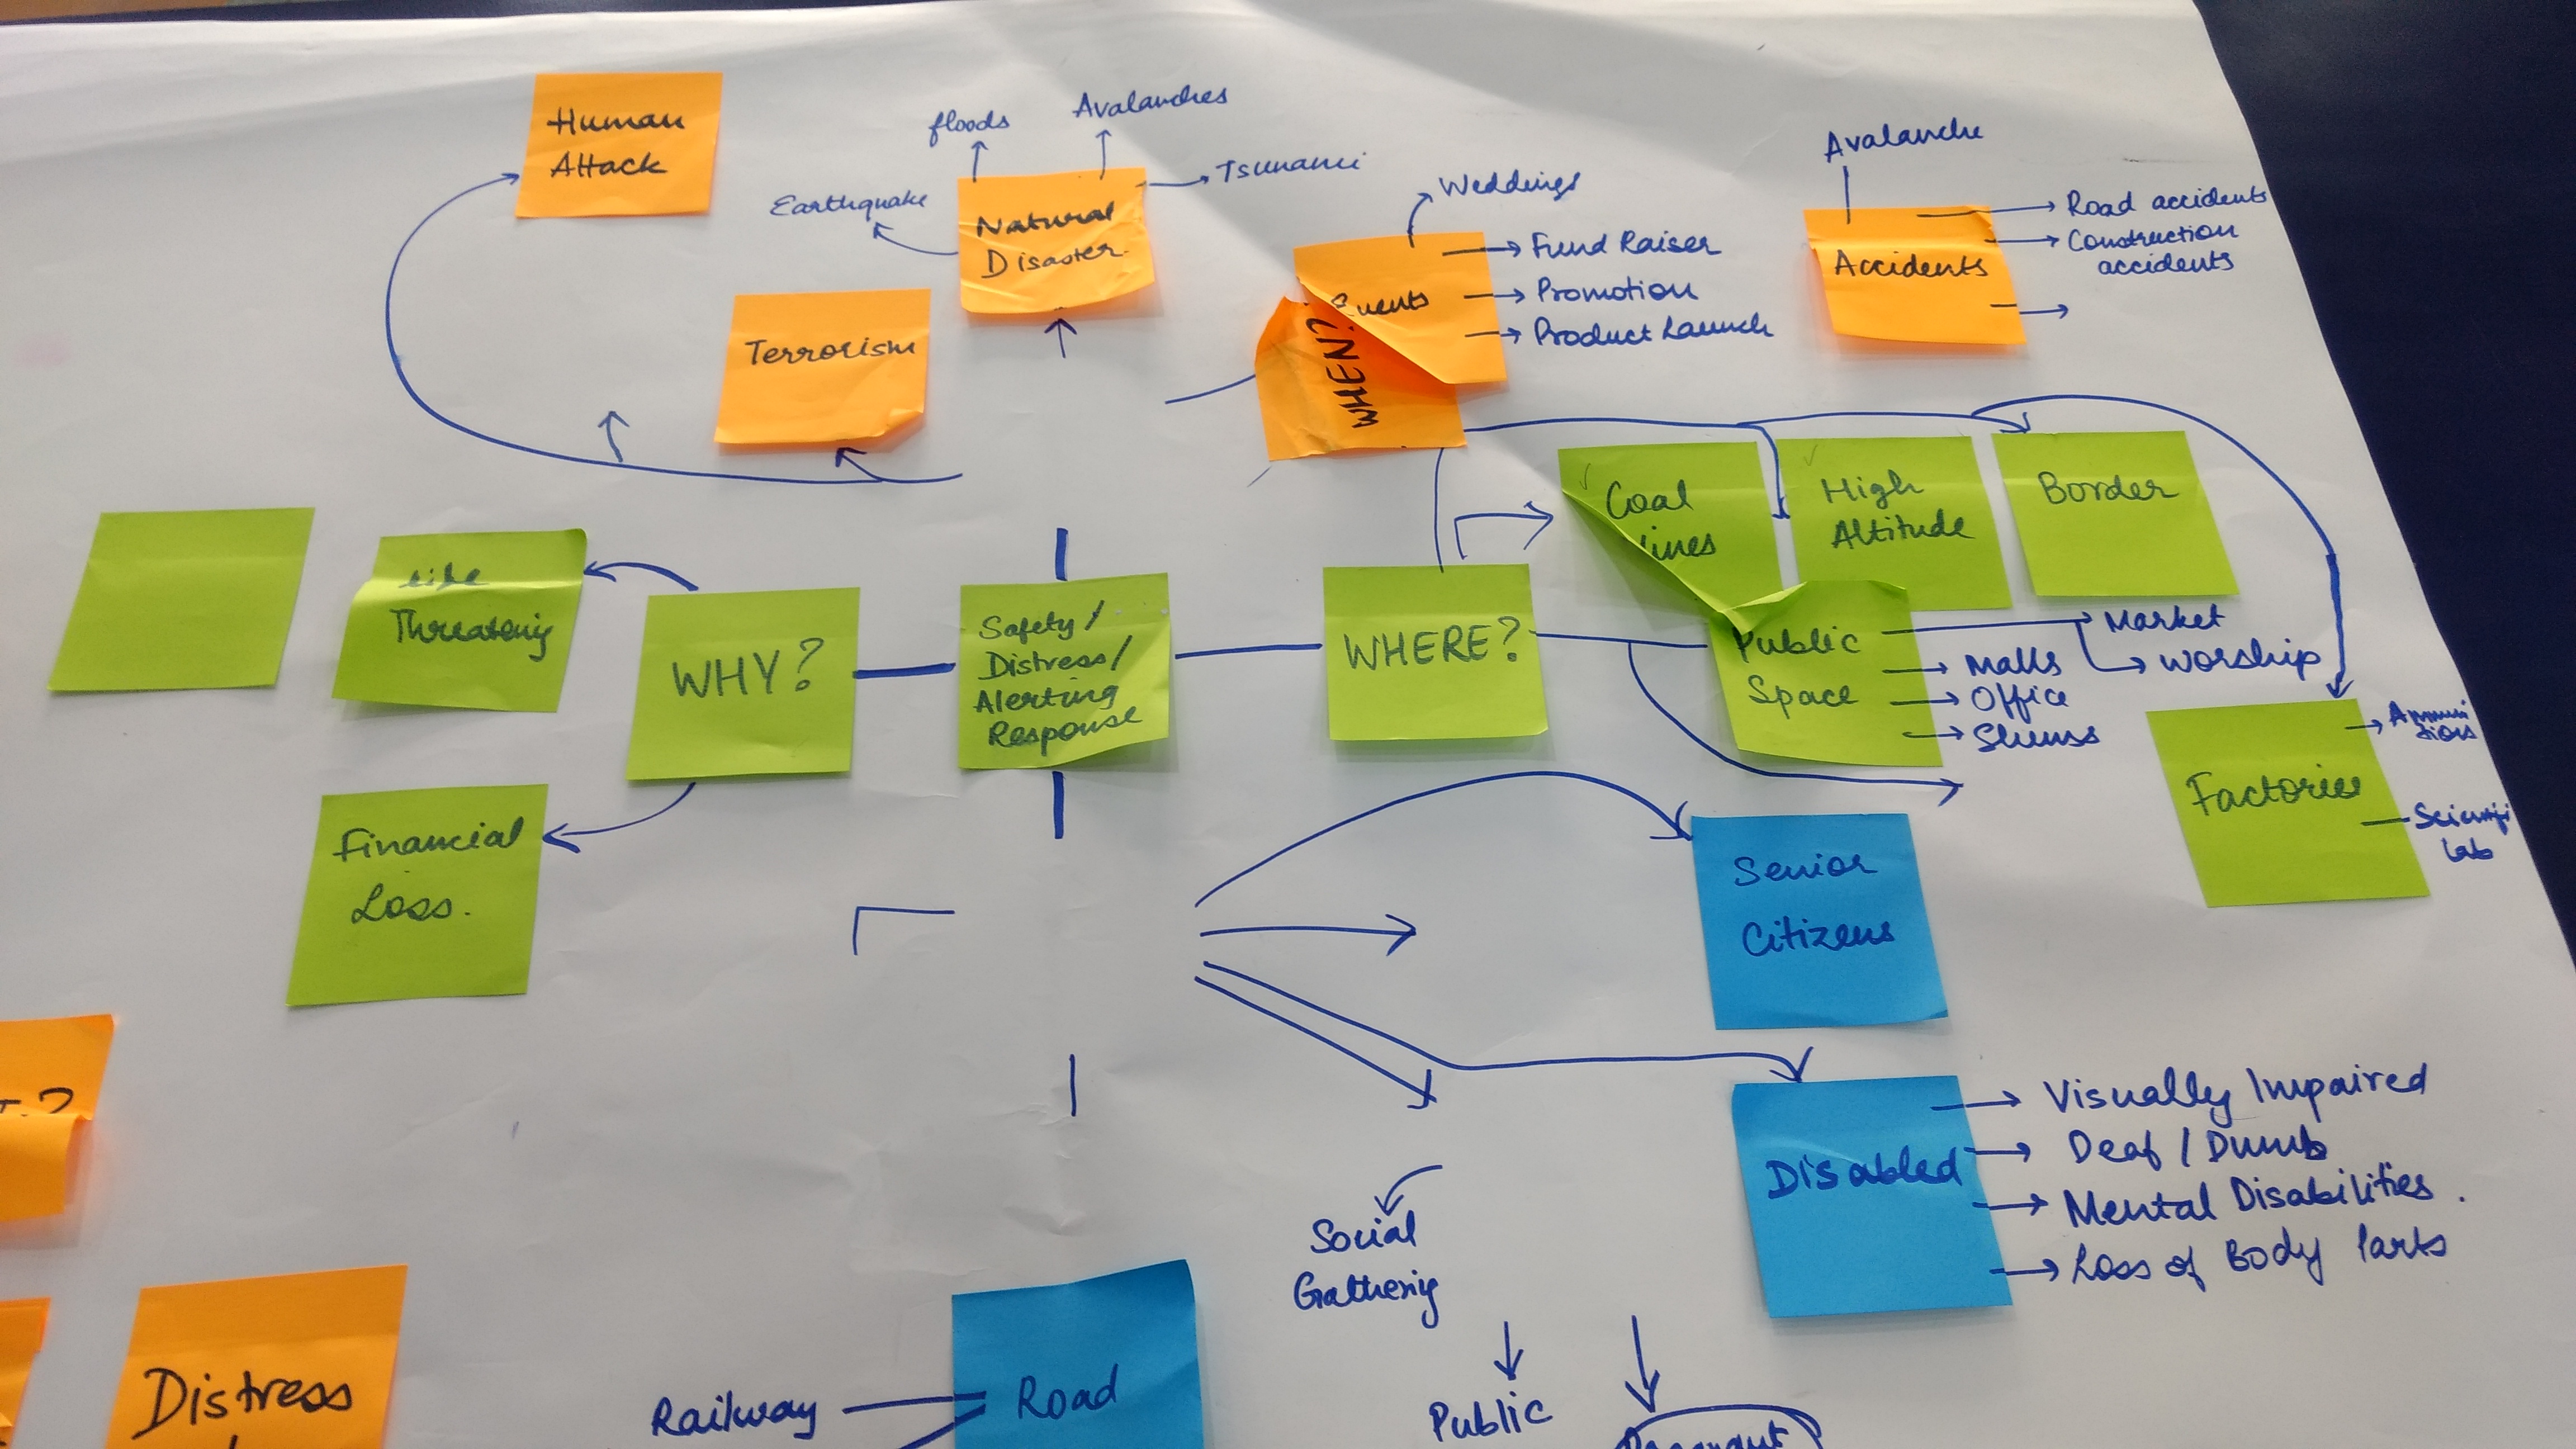 Human
Attack
floods
Avalanches
Earthquake
Tsunami
Natural
Disaster.
Terrorism
Weddings
Events
Fund Raiser
Promotion
Product Launch
WHEN?
Avalanche
Accidents
Road accidents
Construction
accidents
Coal
High
Altitude
Border
Life
Threatenig
WHY?
Safety/
Distress/
Alerting
Response
WHERE?
Public
Space
Market
Worship
Malls
Office
Factories
Lab
Financial
Loss.
Senior
Citizens
Disabled
Visually Impaired
Deaf / Dumb
Mental Disabilities.
Loss of Body Parts
Social
Gatherig
Public
Distress
Railway
Road